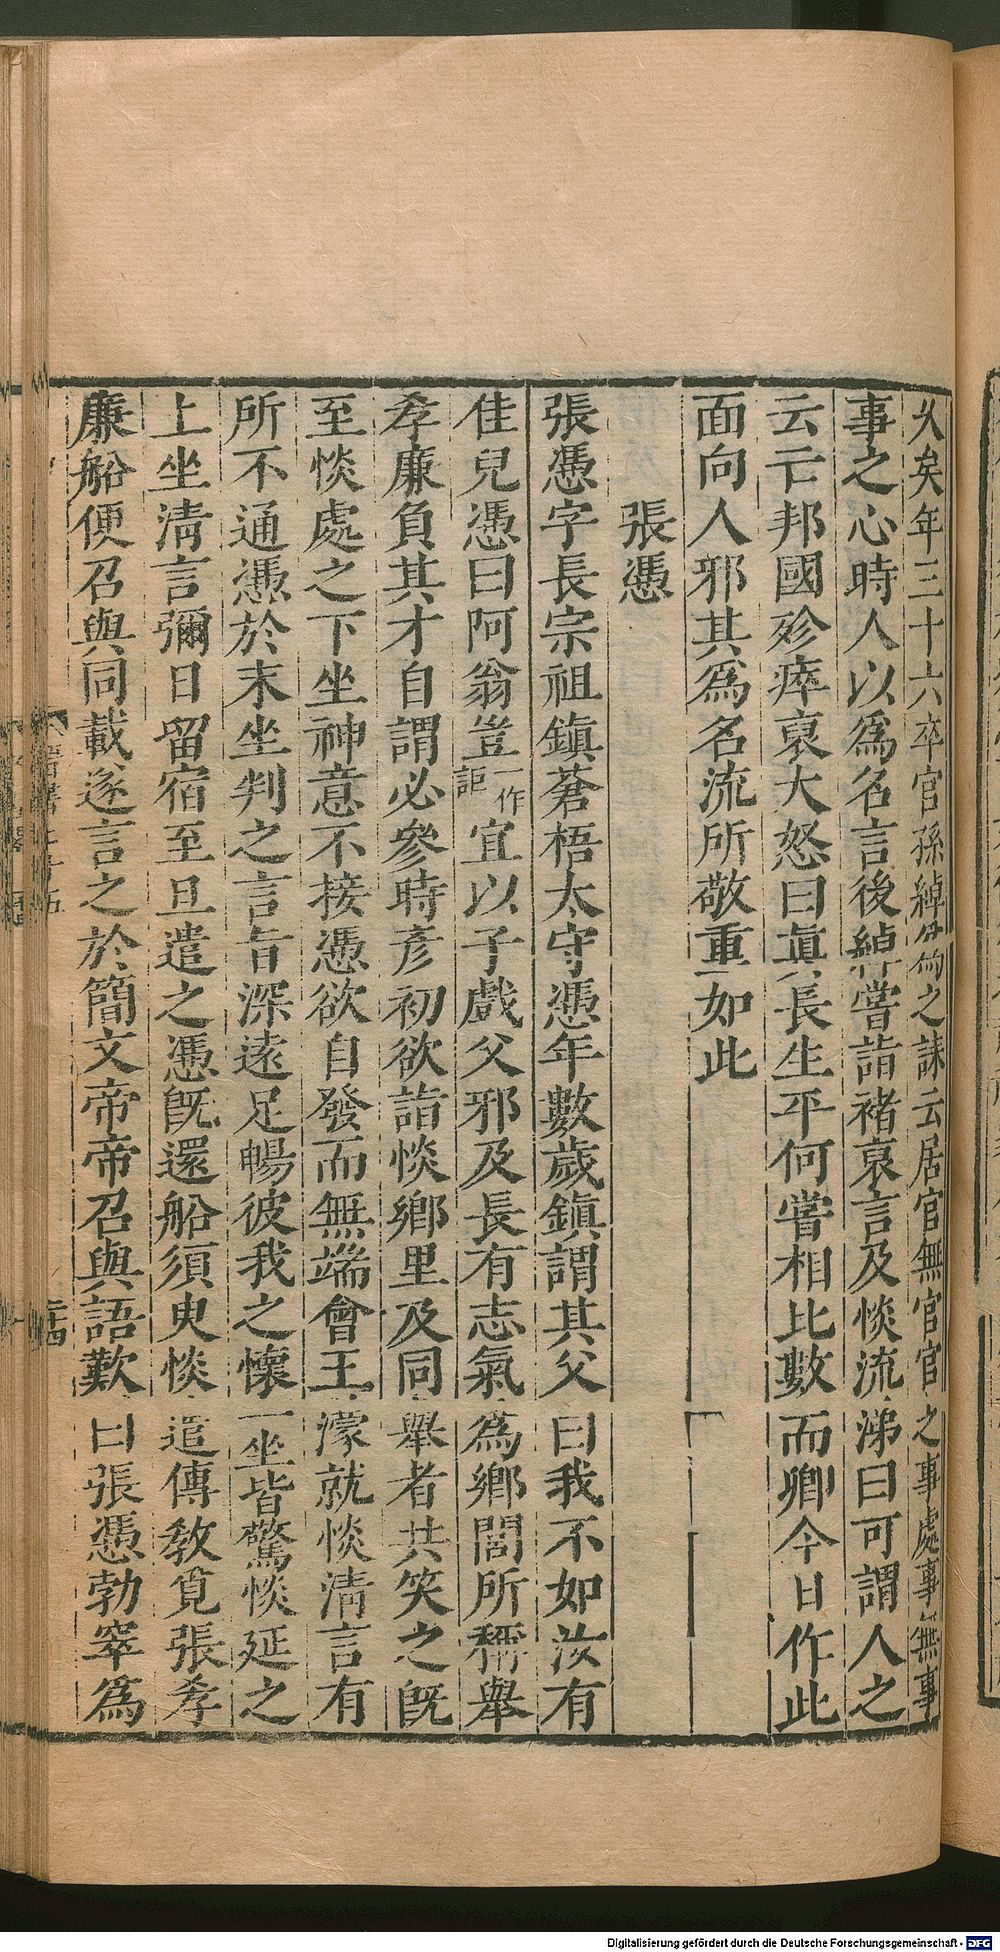 久矣年三十六卒官孫綽爲之誄云居官無官官之事處事無事
事之心時人以爲名言後綽嘗詣褚裒言及惔流涕曰可謂人之
云亡邦國殄瘁裒大怒曰眞長生平何嘗相比數而卿今日作此
面向人邪其爲名流所敬重如此
張憑
張憑字長宗祖鎮蒼梧太守憑年數歲鎮謂其父曰我不如汝有
佳兒憑曰阿翁豈一作詎宜以子戲父邪及長有志氣爲鄉閭所稱舉
孝廉負其才自謂必參時彥初欲詣惔鄉里及同舉者共笑之旣
至惔處之下坐神意不接憑欲自發而無端會王濛就惔清言有
所不通憑於末坐判之言旨深遠足暢彼我之懷一坐皆驚惔延之
上坐淸言彌日留宿至旦遣之憑旣還船須臾惔遣傳敎覓張孝
廉船便召與同載遂言之於簡文帝帝召與語歎曰張憑勃窣爲
二十四
Digitalisierung gefördert durch die Deutsche Forschungsgemeinschaft - DFG